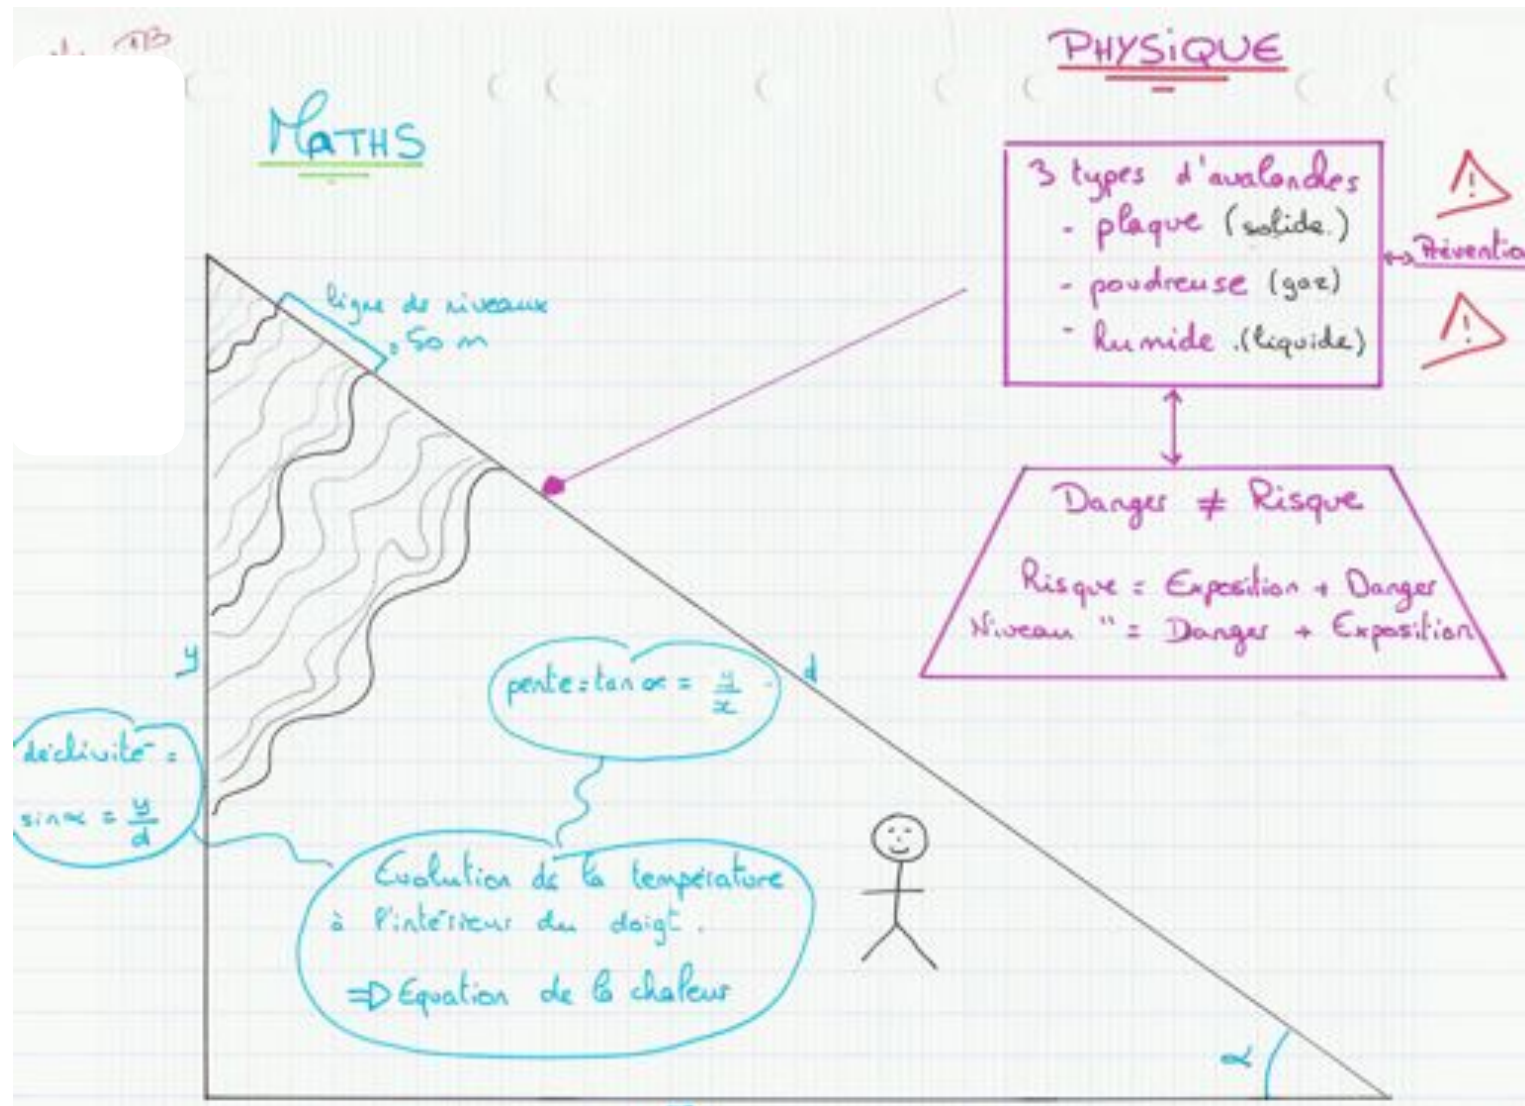 MaTHS
PHYSiQUE
3 types d'avalanches
- plaque (solide.)
- poudreuse (gaz)
- humide .(liquide)
!
Préventio
!
ligne de niveaux
50 m
Danger ≠ Risque
Risque = Exposition + Danger
Niveau " = Danger + Exposition
y
pente = tan α = y/x
d
déclivité =
sin α = y/d
Evolution de la température
à l'intérieur du doigt.
⇒ Equation de la chaleur
α